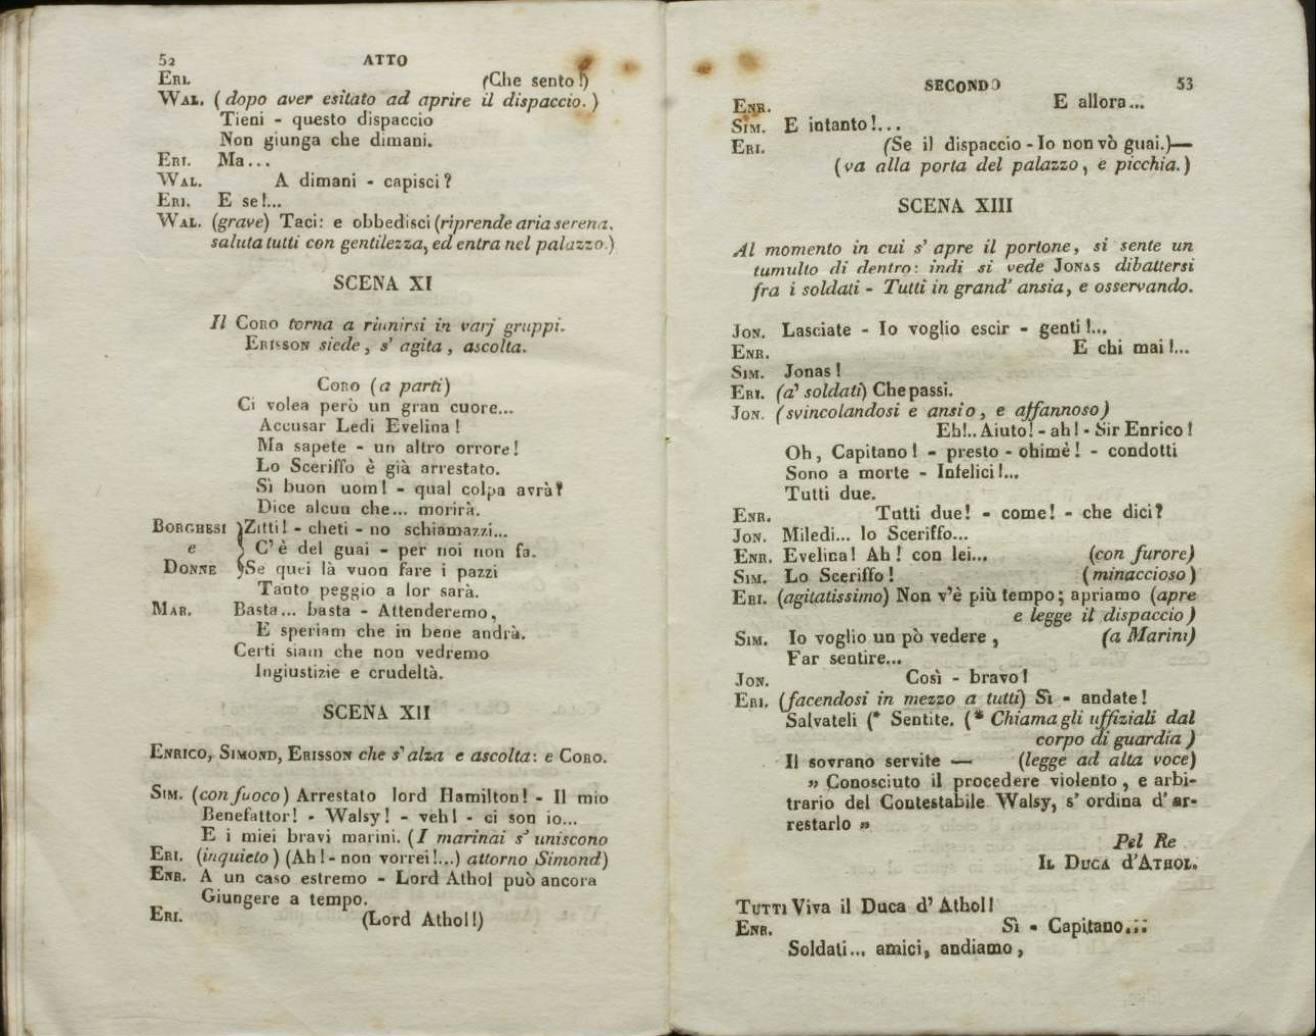 52 ATTO
ERI. (Che sento!)
WAL. (dopo aver esitato ad aprire il dispaccio.)
Tieni - questo dispaccio
Non giunga che dimani.
ERI. Ma...
WAL. A dimani - capisci?
ERI. E se!...
WAL. (grave) Taci: e obbedisci (riprende aria serena,
saluta tutti con gentilezza, ed entra nel palazzo.)
SCENA XI
Il CORO torna a riunirsi in varj gruppi.
ERISSON siede, s' agita, ascolta.
CORO (a parti)
Ci volea però un gran cuore...
Accusar Ledi Evelina!
Ma sapete - un altro orrore!
Lo Sceriffo è già arrestato.
Sì buon uom! - qual colpa avrà?
Dice alcun che... morirà.
BORGHESI } Zitti! - cheti - no schiamazzi...
e } C'è del guai - per noi non fa.
DONNE } Se quei là vuon fare i pazzi
Tanto peggio a lor sarà.
MAR. Basta... basta - Attenderemo,
E speriam che in bene andrà.
Certi siam che non vedremo
Ingiustizie e crudeltà.
SCENA XII
ENRICO, SIMOND, ERISSON che s'alza e ascolta: e CORO.
SIM. (con fuoco) Arrestato lord Hamilton! - Il mio
Benefattor! - Walsy! - veh! - ci son io...
E i miei bravi marini. (I marinai s' uniscono
ERI. (inquieto) (Ah! - non vorrei!...) attorno Simond)
ENR. A un caso estremo - Lord Athol può ancora
Giungere a tempo.
ERI. (Lord Athol!)
SECONDO 53
ENR. E allora...
SIM. E intanto!...
ERI. (Se il dispaccio - Io non vò guai.)—
(va alla porta del palazzo, e picchia.)
SCENA XIII
Al momento in cui s' apre il portone, si sente un
tumulto di dentro: indi si vede JONAS dibattersi
fra i soldati - Tutti in grand' ansia, e osservando.
JON. Lasciate - Io voglio escir - genti!...
ENR. E chi mai!...
SIM. Jonas!
ERI. (a' soldati) Che passi.
JON. (svincolandosi e ansio, e affannoso)
Eh!.. Aiuto! - ah! - Sir Enrico!
Oh, Capitano! - presto - ohimè! - condotti
Sono a morte - Infelici!...
Tutti due.
ENR. Tutti due! - come! - che dici?
JON. Miledi... lo Sceriffo...
ENR. Evelina! Ah! con lei... (con furore)
SIM. Lo Sceriffo! (minaccioso)
ERI. (agitatissimo) Non v'è più tempo; apriamo (apre
e legge il dispaccio)
SIM. Io voglio un pò vedere, (a Marini)
Far sentire...
JON. Così - bravo!
ERI. (facendosi in mezzo a tutti) Sì - andate!
Salvateli (* Sentite. (* Chiama gli uffiziali dal
corpo di guardia)
Il sovrano servite — (legge ad alta voce)
» Conosciuto il procedere violento, e arbi-
trario del Contestabile Walsy, s' ordina d' ar-
restarlo »
Pel Re
IL DUCA D'ATHOL.
TUTTI Viva il Duca d' Athol!
ENR. Sì - Capitano...
Soldati... amici, andiamo,